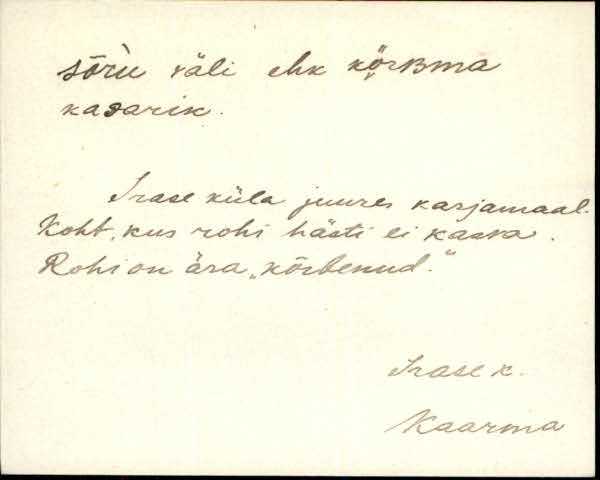 sõrù väli ehk kõrʙma
kadarik.
Irase küla juures karjamaal.
Koht, kus rohi hästi ei kasva.
Rohi on ära „kõrbenud."
Irase k.
Kaarma